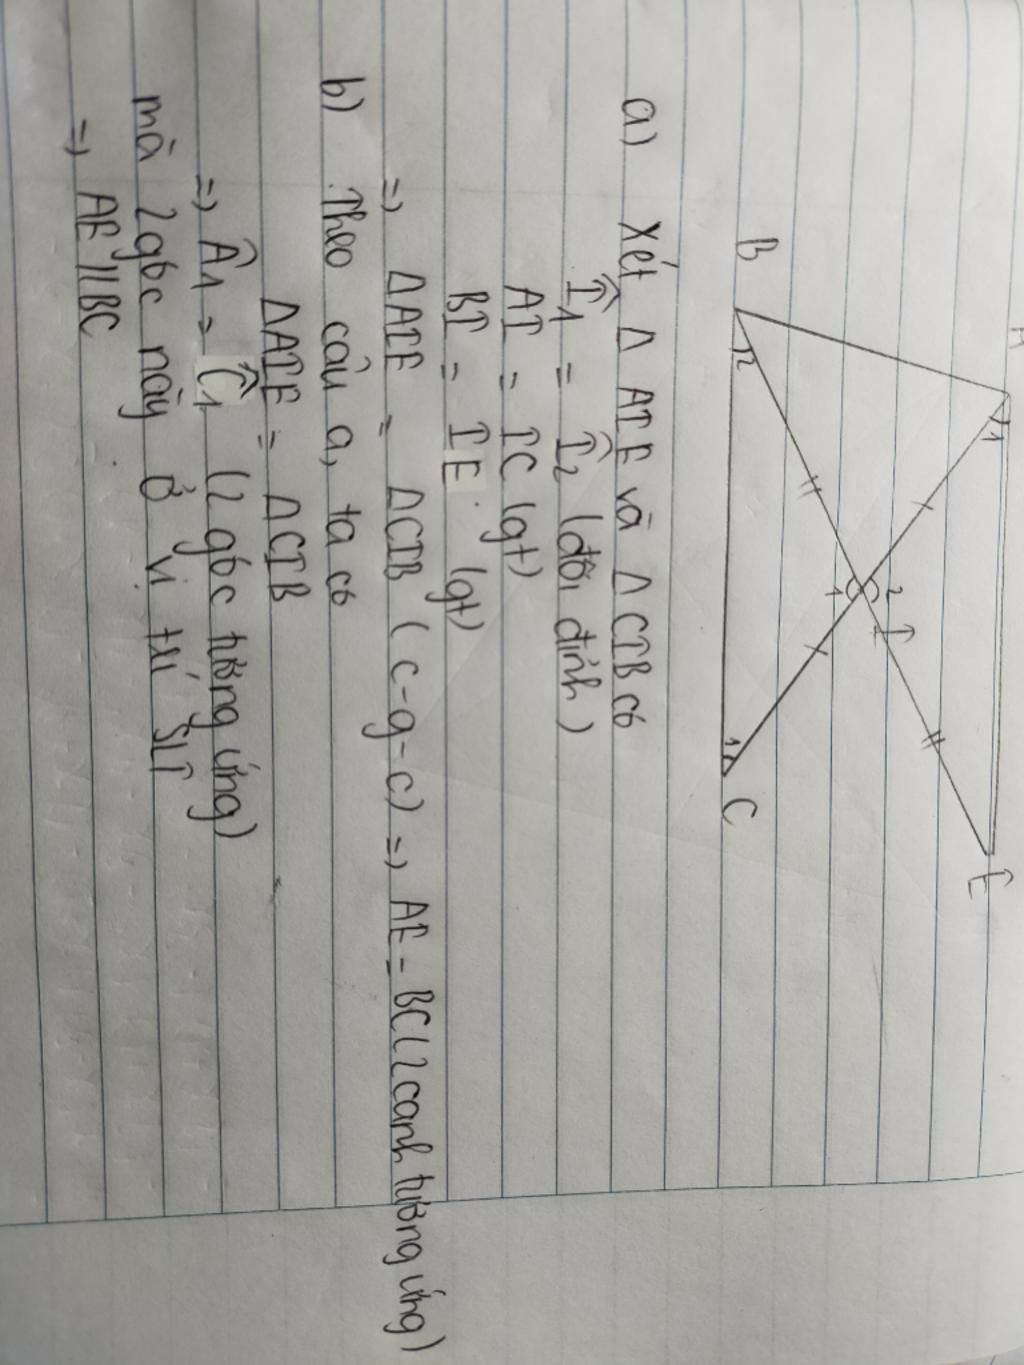 A
1
E
2
I
1
B
2
1
C
a) Xét Δ AIE và Δ CIB có
Î1 = Î2 (đối đỉnh)
AI = IC (gt)
BI = IE (gt)
=> ΔAIE = ΔCIB (c-g-c) => AE = BC (2 cạnh tương ứng)
b) Theo câu a, ta có
ΔAIE = ΔCIB
=> Â1 = Ĉ1 (2 góc tương ứng)
mà 2 góc này ở vị trí SLT
=> AE // BC